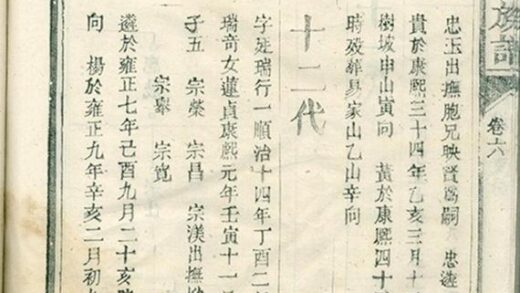 族譜
卷六
忠玉出撫胞兄映賢爲嗣 忠遠
貴於康熙三十四年乙亥三月十
樹坡申山寅向 黃於康熙四十
時殁葬易家山乙山辛向
十二代
字廷瑞行一順治十四年丁酉二
瑞奇女蓮貞康熙元年壬寅十一
子五 宗榮 宗昌 宗渼出撫
宗臯 宗寬
遠於雍正七年己酉九月二十亥時
向 楊於雍正九年辛亥二月初